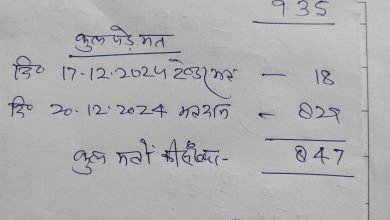 935
कुल पड़े मत
दि० 17-12-2024 टेण्डर मत — 18
दि० 20-12-2024 मतदान - 829
कुल मतों की संख्या- 847